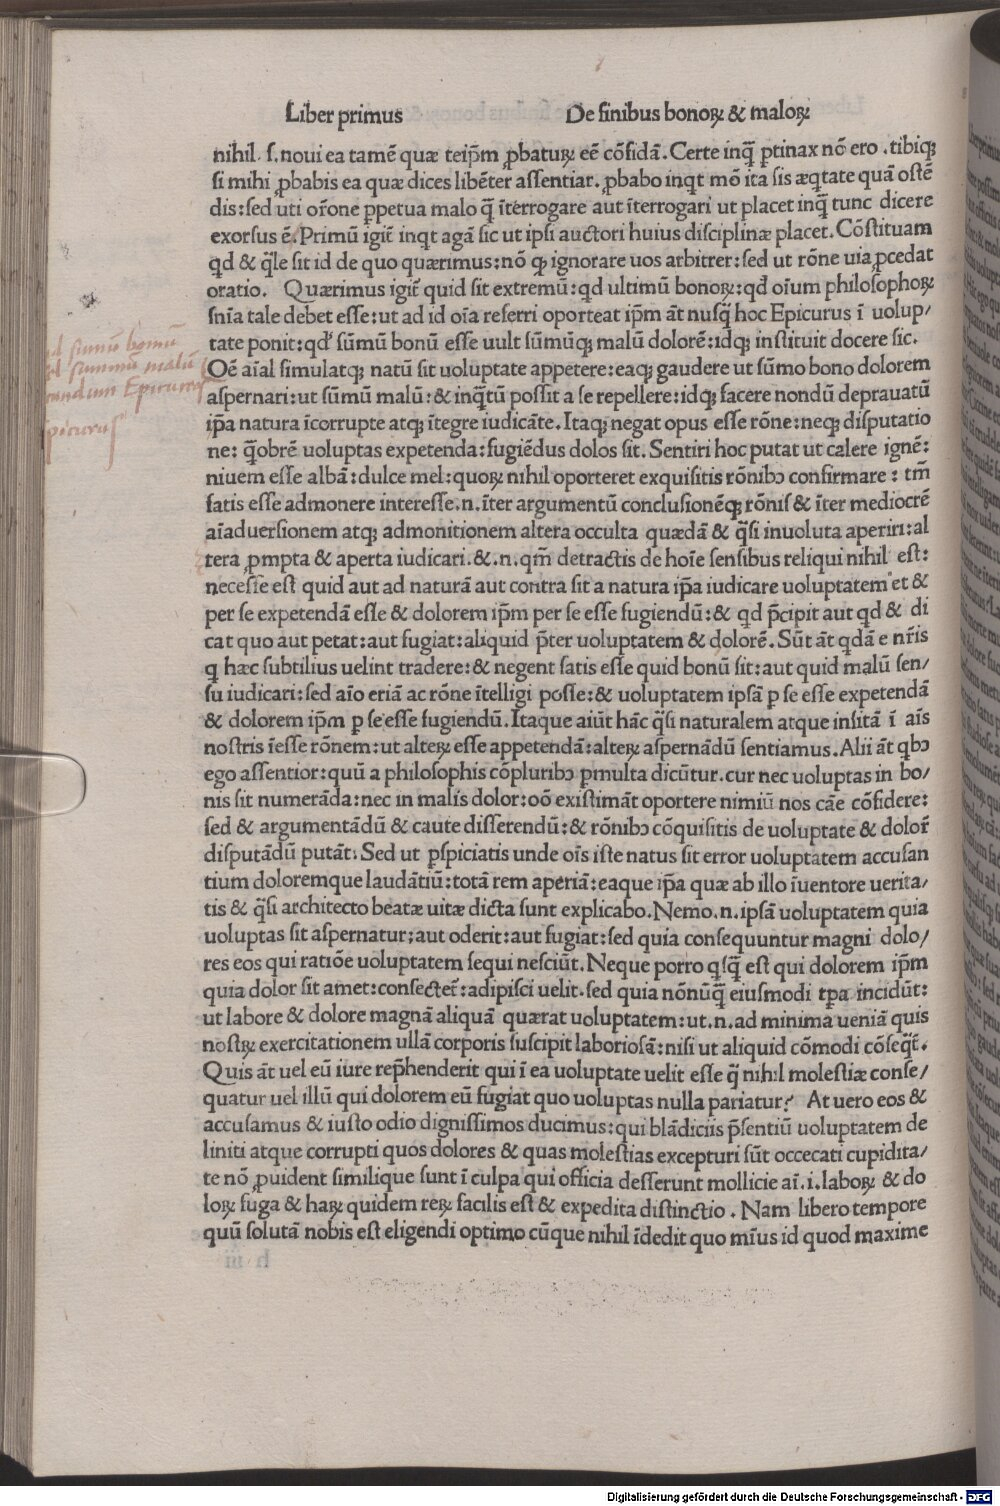 Liber primus De finibus bonoꝝ & maloꝝ
nihil. ſ. noui ea tamē quæ teip̄m ꝓbatuꝝ eē cōfidā. Certe inq̄ ꝑtinax nō ero . tibiqꝫ
ſi mihi ꝓbabis ea quæ dices libēter aſſentiar. ꝓbabo inqt mō ita ſis æqtate quā oſtē
dis: ſed uti or̄one ꝑpetua malo q̄ īterrogare aut īterrogari ut placet inq̄ tunc dicere
exorſus ē. Primū igit̄ inqt agā ſic ut ipſi auctori huius diſciplinæ placet. Cōſtituam
qd & q̄le ſit id de quo quærimus: nō ꝙ ignorare uos arbitrer: ſed ut rōne uia ꝓcedat
oratio. Quærimus igit̄ quid ſit extremū: qd ultimū bonoꝝ: qd oīum philoſophoꝝ
ſnīa tale debet eſſe: ut ad id oīa referri oporteat ip̄m āt nuſq̄ hoc Epicurus ī uolup/
tate ponit: qd ſūmū bonū eſſe uult ſūmūqꝫ malū dolorē: idqꝫ inſtituit docere ſic.
Oē aīal ſimulatqꝫ natū ſit uoluptate appetere: eaqꝫ gaudere ut ſūmo bono dolorem
aſpernari: ut ſūmū malū: & inq̄tū poſſit a ſe repellere: idqꝫ facere nondū deprauatū
ip̄a natura īcorrupte atqꝫ ītegre iudicāte. Itaqꝫ negat opus eſſe rōne: neqꝫ diſputatio
ne: q̄obrē uoluptas expetenda: fugiēdus dolos ſit. Sentiri hoc putat ut calere ignē:
niuem eſſe albā: dulce mel: quoꝝ nihil oporteret exquiſitis rōnibꝫ confirmare : tm̄
ſatis eſſe admonere intereſſe .n. īter argumentū concluſionēqꝫ rōniſ & īter mediocrē
aīaduerſionem atqꝫ admonitionem altera occulta quædā & q̄ſi inuoluta aperiri: al
tera ꝓmpta & aperta iudicari. &. n. qm̄ detractis de hoīe ſenſibus reliqui nihil eſt:
neceſſe eſt quid aut ad naturā aut contra ſit a natura ip̄a iudicare uoluptatem et &
per ſe expetendā eſſe & dolorem ip̄m per ſe eſſe fugiendū: & qd p̄cipit aut qd & di
cat quo aut petat: aut fugiat: aliquid p̄ter uoluptatem & dolorē. Sūt āt qdā e nr̄is
q hæc ſubtilius uelint tradere: & negent ſatis eſſe quid bonū ſit: aut quid malū ſen/
ſu iudicari: ſed aīo eriā ac rōne ītelligi poſſe: & uoluptatem ipſā ꝑ ſe eſſe expetendā
& dolorem ip̄m ꝑ ſe eſſe fugiendū. Itaque aiūt hāc q̄ſi naturalem atque inſitā ī aīs
noſtris īeſſe rōnem: ut alteꝝ eſſe appetendā: alteꝝ aſpernādū ſentiamus. Alii āt qbꝫ
ego aſſentior: quū a philoſophis cōpluribꝫ ꝑmulta dicūtur. cur nec uoluptas in bo/
nis ſit numerāda: nec in malis dolor: oō exiſtimāt oportere nimiū nos cāe cōfidere:
ſed & argumentādū & caute diſſerendū: & rōnibꝫ cōquiſitis de uoluptate & dolor̄
diſputādū putāt. Sed ut ꝑſpiciatis unde oīs iſte natus ſit error uoluptatem accuſan
tium doloremque laudātiū: totā rem aperiā: eaque ip̄a quæ ab illo īuentore uerita/
tis & q̄ſi architecto beatæ uitæ dicta ſunt explicabo. Nemo .n. ipſā uoluptatem quia
uoluptas ſit aſpernatur; aut oderit: aut fugiat: ſed quia conſequuntur magni dolo/
res eos qui ratiōe uoluptatem ſequi neſciūt. Neque porro qſq̄ eſt qui dolorem ip̄m
quia dolor ſit amet: conſectet̄: adipiſci uelit. ſed quia nōnūq̄ eiuſmodi tꝑa incidūt:
ut labore & dolore magnā aliquā quærat uoluptatem: ut .n. ad minima ueniā quis
noſtꝝ exercitationem ullā corporis ſuſcipit laborioſā: niſi ut aliquid cōmodi cōſeq̄t̄.
Quis āt uel eū iure rep̄henderit qui ī ea uoluptate uelit eſſe q̄ nihil moleſtiæ conſe/
quatur uel illū qui dolorem eū fugiat quo uoluptas nulla pariatur? At uero eos &
accuſamus & iuſto odio digniſſimos ducimus: qui blādiciis p̄ſentiū uoluptatem de
liniti atque corrupti quos dolores & quas moleſtias excepturi ſūt occecati cupidita/
te nō ꝓuident ſimilique ſunt ī culpa qui officia deſſerunt mollicie aī. i. laboꝝ & do
loꝝ fuga & haꝝ quidem reꝝ facilis eſt & expedita diſtinctio . Nam libero tempore
quū ſolutā nobis eſt eligendi optimo cūque nihil īdedit quo mīus id quod maxime
ſumū bonū
ſummū malū
Epicurus
Digitalisierung gefördert durch die Deutsche Forschungsgemeinschaft - DFG